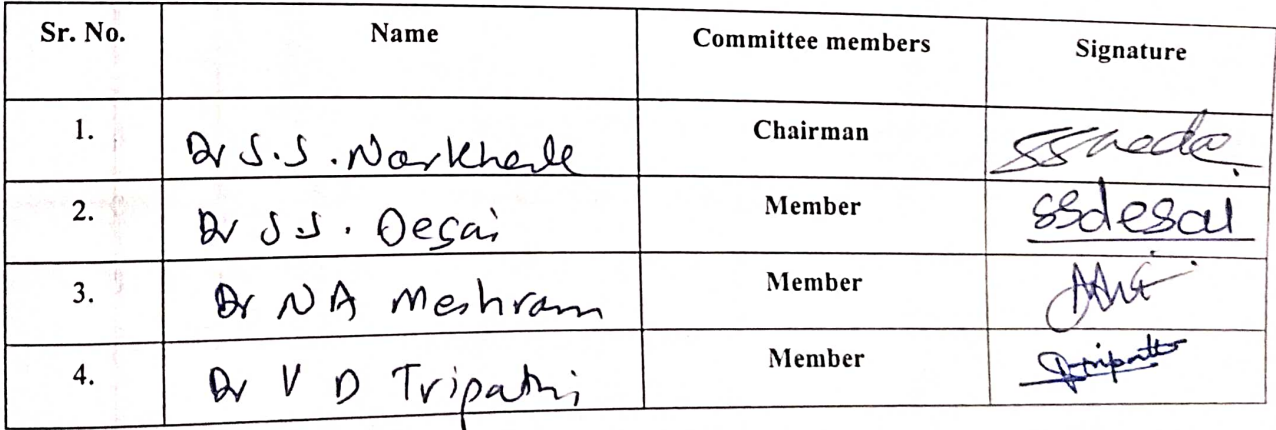 Sr. No. Name Committee members Signature
1. Dr S.S. Narkhede Chairman
2. Dr S.S. Desai Member ssdesai
3. Dr N A Meshram Member
4. Dr V D Tripathi Member Dtripathi